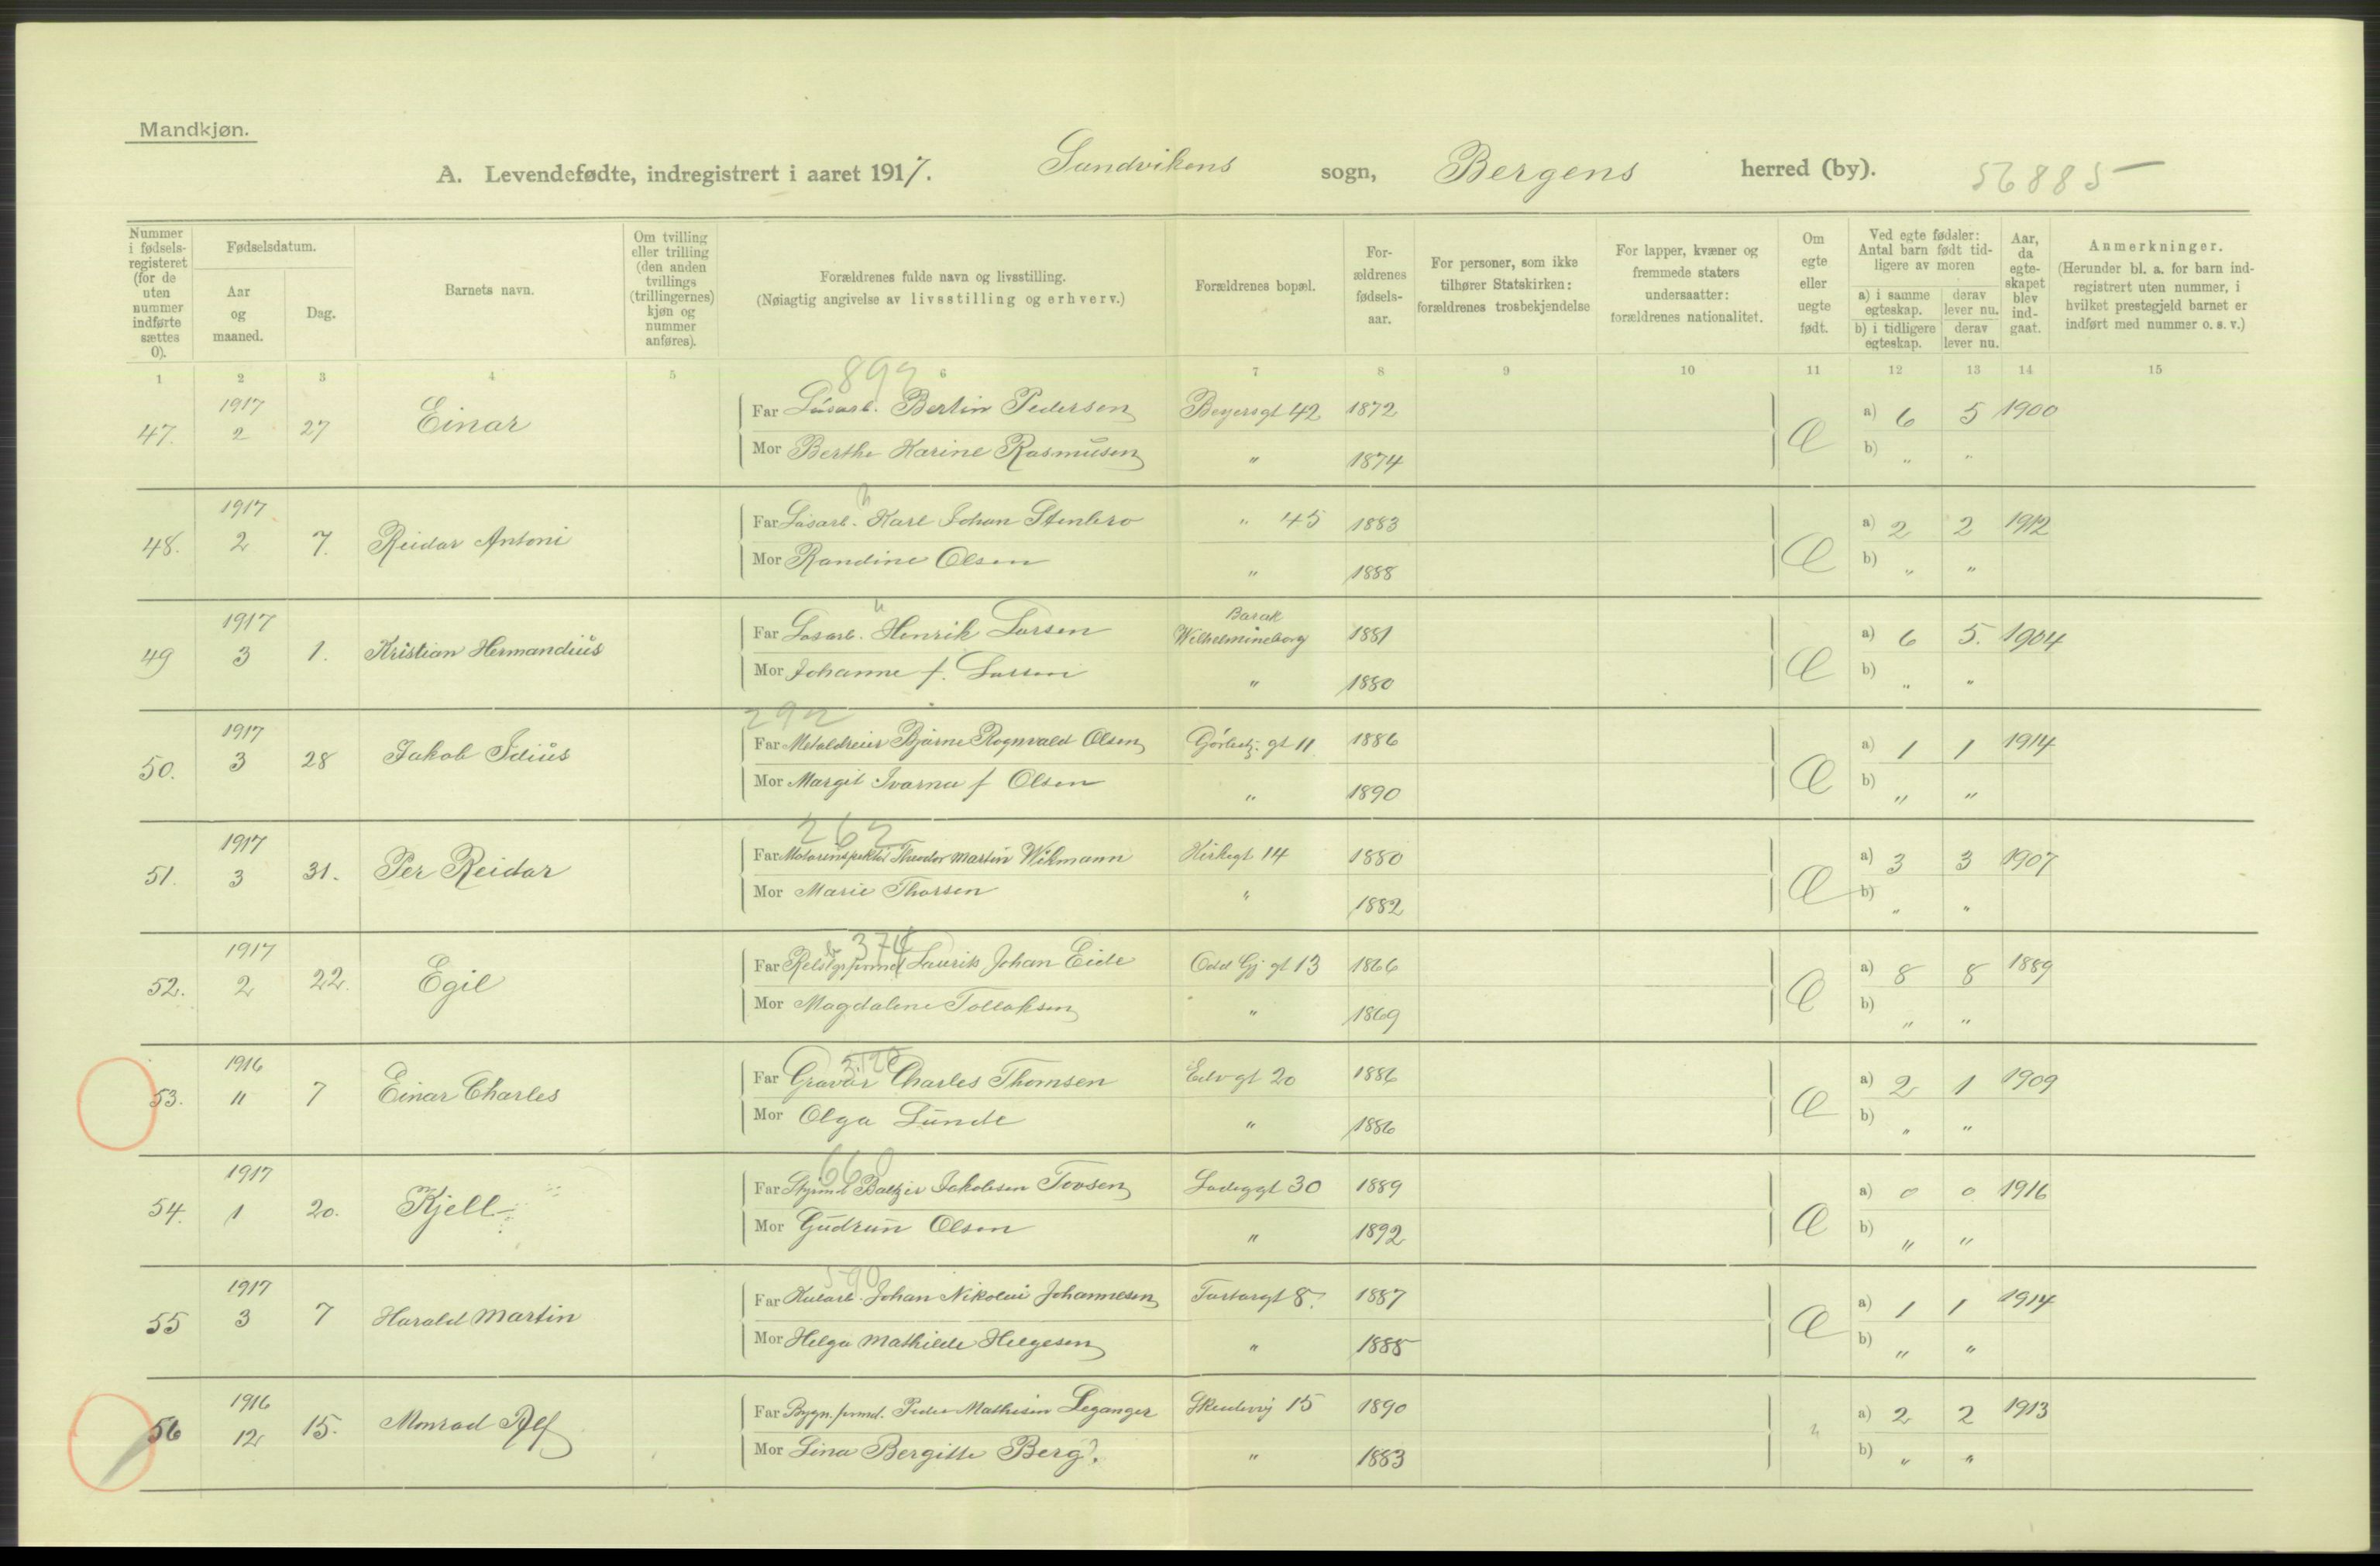 Mandkjøn.
A. Levendefødte, indregistrert i aaret 1917. Sandvikens sogn, Bergens herred (by). 56885
Nummer i fødselsregisteret (for de uten nummer indførte sættes 0).
Fødselsdatum.
Aar og maaned.
Dag.
Barnets navn.
Om tvilling eller trilling (den anden tvillings (trillingernes) kjøn og nummer anføres).
Forældrenes fulde navn og livsstilling.
(Nøiagtig angivelse av livsstilling og erhverv.)
Forældrenes bopæl.
Forældrenes fødselsaar.
For personer, som ikke tilhører Statskirken: forældrenes trosbekjendelse
For lapper, kvæner og fremmede staters undersaatter: forældrenes nationalitet.
Om egte eller uegte født.
Ved egte fødsler: Antal barn født tidligere av moren
a) i samme egteskap. derav lever nu.
b) i tidligere egteskap. derav lever nu.
Aar, da egteskapet blev indgaat.
Anmerkninger.
(Herunder bl. a. for barn indregistrert uten nummer, i hvilket prestegjeld barnet er indført med nummer o. s. v.)
1 2 3 4 5 6 7 8 9 10 11 12 13 14 15
899
47. 1917 2 27 Einar Far Løsarb. Bertin Pedersen Beyersgt 42 1872 Æ a) 6 5 1900
Mor Berthe Karine Rasmusen " 1874 b) " "
48. 1917 2 7. Reidar Antoni Far Løsarb. Karl Johan Stenbro " 45 1883 Æ a) 2 2 1912
Mor Randine Olsen " 1888 b) " "
49 1917 3 1. Kristian Hermandius Far Løsarb. Henrik Larsen Barak Wilhelmineborg 1881 Æ a) 6 5. 1904
Mor Johanne f. Larsen " 1880 b) " "
292
50. 1917 3 28 Jakob Idius Far Metaldreier Bjarne Rognvald Olsen gt 11 1886 Æ a) 1 1 1914
Mor Margit Ivarna f Olsen " 1890 b) " "
262
51. 1917 3 31. Per Reidar Far Motorinspektør Theodor Martin Wikmann Kirkegt 14 1880 Æ a) 3 3 1907
Mor Marie Thorsen " 1882 b) " "
374
52. 1917 2 22. Egil Far Laurits Johan Eide Odd Gj gt 13 1866 Æ a) 8 8 1889
Mor Magdalene Tollaksen " 1869 b) " "
53. 1916 11 7 Einar Charles Far Gravør Charles Thomsen Edvgt 20 1886 Æ a) 2 1 1909
Mor Olga Lunde " 1886 b) " "
660
54. 1917 1 20. Kjell Far Styrmd Baltzer Jakobsen Tovsen Ladeggt 30 1889 Æ a) 0 0 1916
Mor Gudrun Olsen " 1892 b) " "
590
55 1917 3 7 Harald Martin Far Kularb. Johan Nikolai Johannesen Tartargt 8. 1887 Æ a) 1 1 1914
Mor Helga Mathilde Helgesen " 1885 b) " "
56 1916 12 15. Monrad Alf Far Bygn.formd. Peder Mathisen Leganger Skudevij 15 1890 " a) 2 2 1913
Mor Lina Bergitte Berg. " 1883 b) " "